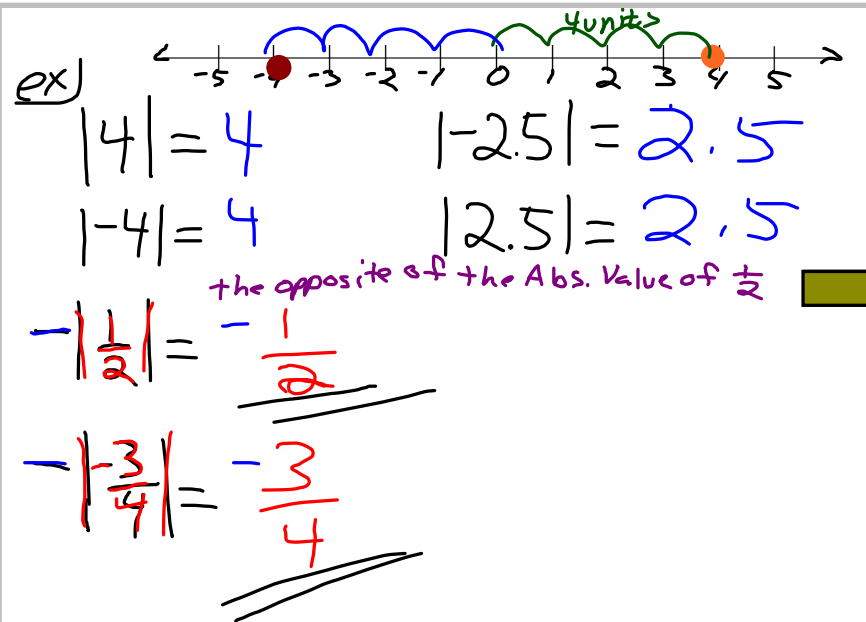 4units
-5 -4 -3 -2 -1 0 1 2 3 4 5
ex)
|4| = 4
|-2.5| = 2.5
|-4| = 4
|2.5| = 2.5
the opposite of the Abs. Value of 1/2
-|1/2| = -1/2
-|-3/4| = -3/4